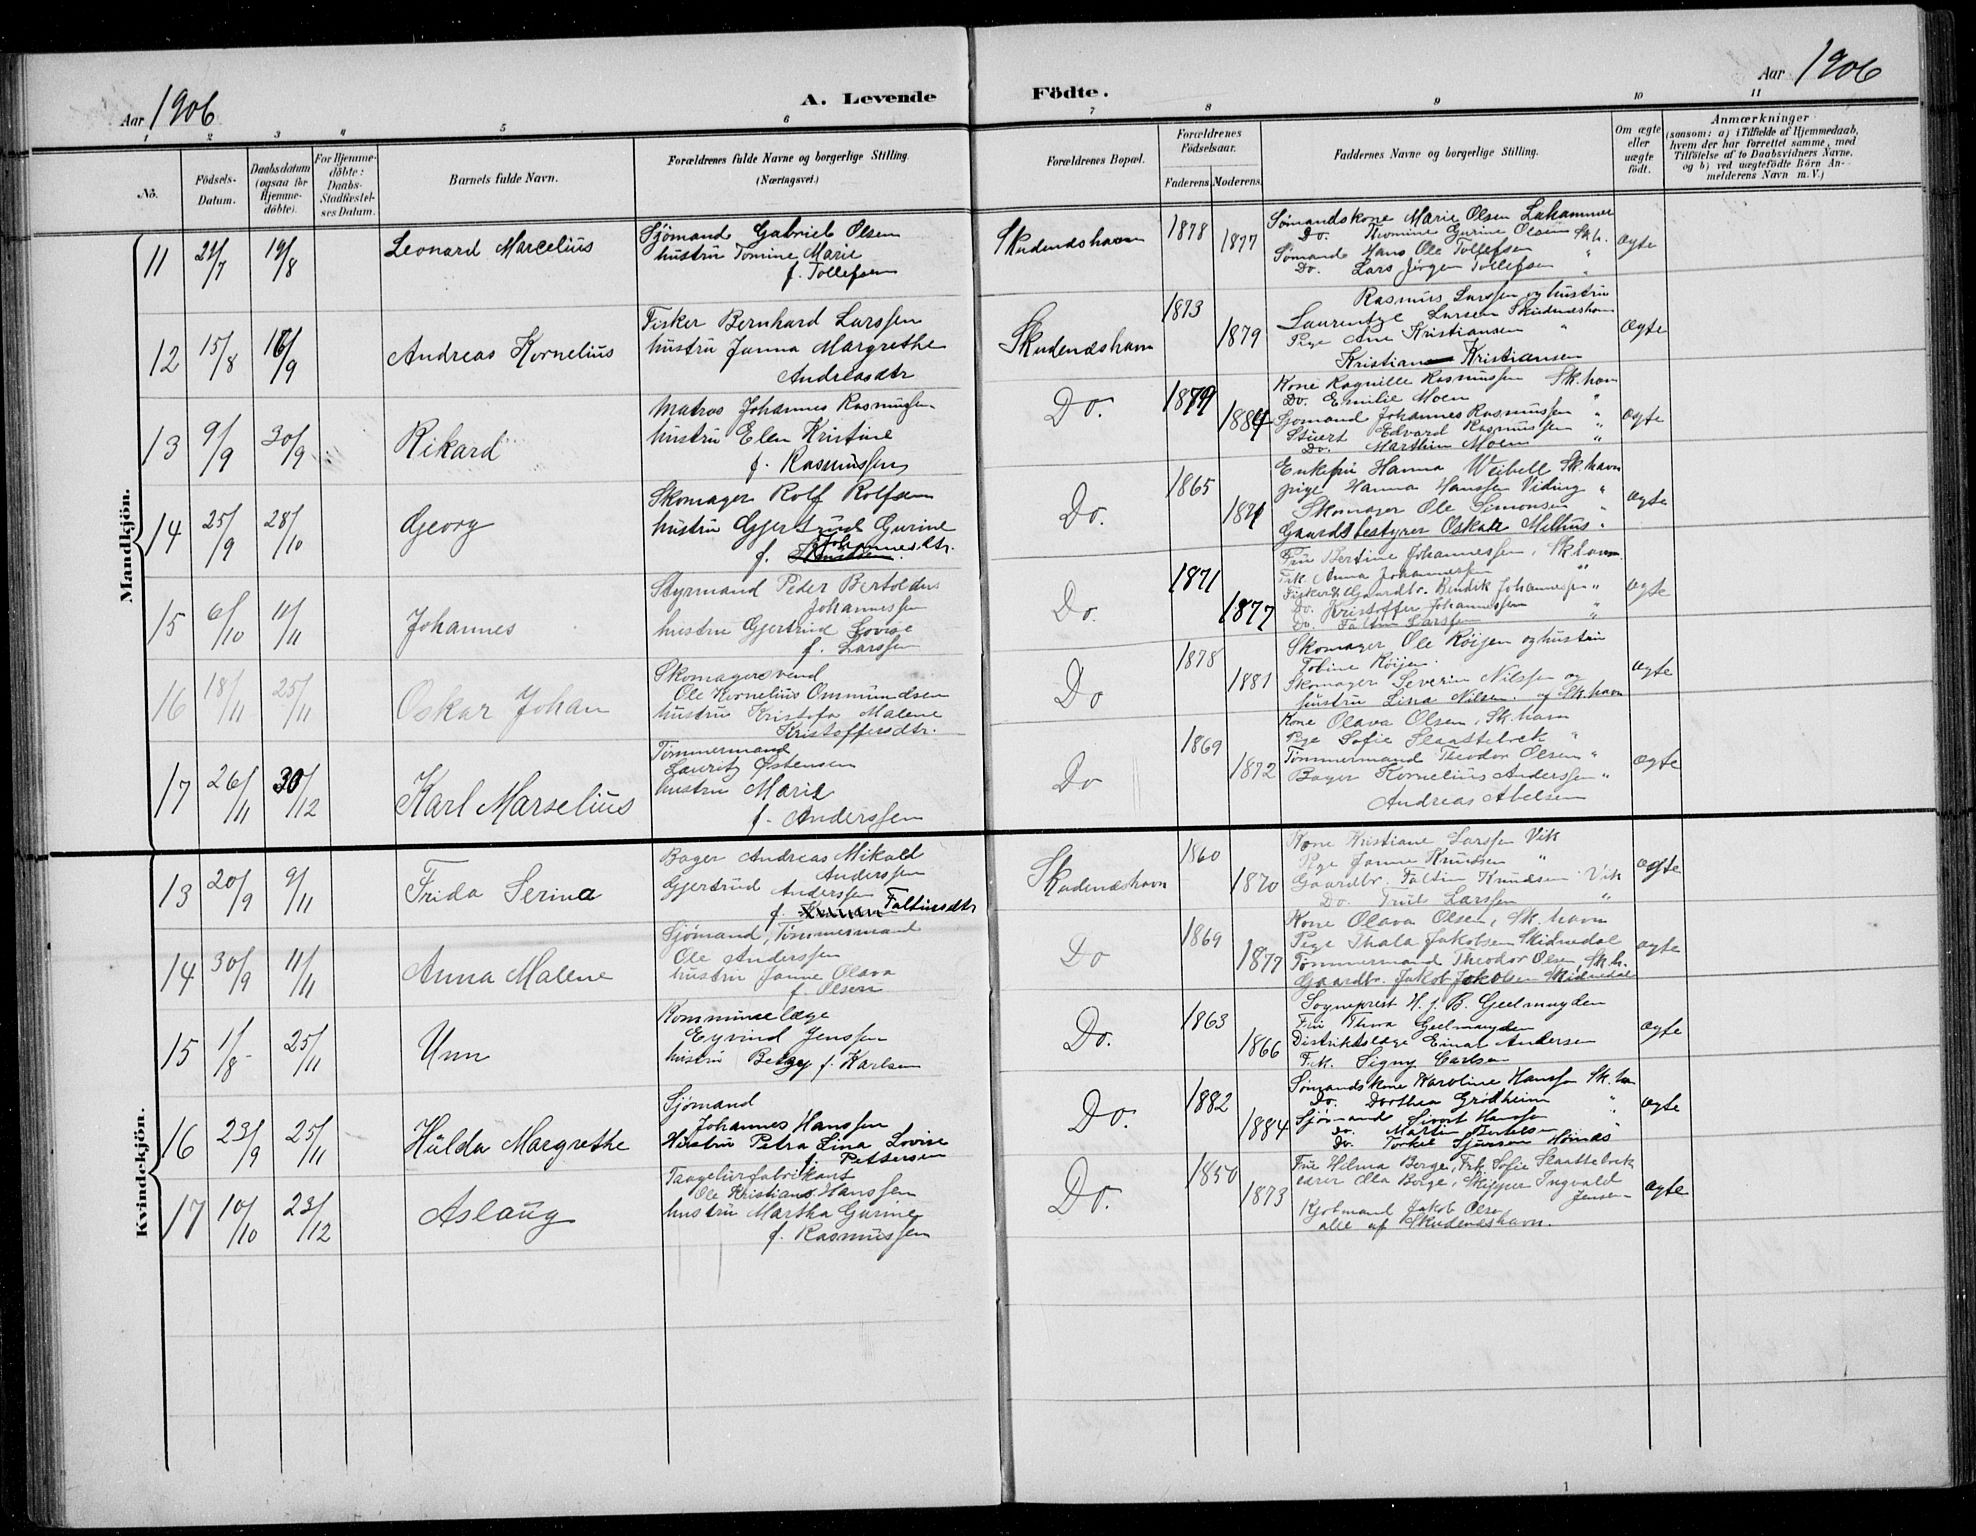 Aar 1906
A. Levende Födte.
Aar 1906
1 2 3 4 5 6 7 8 9 10 11
No.
Födsels-Datum.
Daabsdatum (ogsaa för Hjemme-döbte).
For Hjemme-döbte: Daabs-Stadfæstel-ses Datum.
Barnets fulde Navn.
Forældrenes fulde Navne og borgerlige Stilling (Næringsvei.)
Forældrenes Bopæl.
Forældrenes Födselsaar.
Faderens. Moderens.
Faddernes Navne og borgerlige Stilling.
Om ægte eller uægte födt.
Anmærkninger
(saasom: a) i Tilfælde af Hjemmedaab,
hvem der har forrettet samme, med
Tilföielse af to Daabsvidners Navne.
og b) ved uægtefödte Börn An-
melderens Navn m. V.)
Mandkjön.
11 21/7 19/8 Leonard Marcelius
Sjömand Gabriel Olsen
hustru Tomine Marie
f. Tollefsen
Skudeneshavn 1878 1877
Sømandskone Marie Olsen Lahammer
Do. Thomine Gurine Olsen Sk.h.
Sømand Hans Ole Tollefsen "
Do. Lars Jörgen Tollefsen "
ægte
12 15/8 16/9 Andreas Kornelius
Fisker Bernhard Larssen
hustru Janna Margrethe
Andreasdtr
Skudeneshavn 1873 1879
Rasmus Larssen og hustru
Laurentze Larsen Skudeneshavn
Pige Ane Kristiansen "
Kristian Kristiansen
ægte
13 9/9 30/9 Rikard
Matros Johannes Rasmussen
hustru Elen Kristine
f. Rasmussen
Do. 1879 1884
Kone Ragnille Rasmussen Sk.havn
Do. Emilie Moen "
Sjömand Johannes Rasmussen "
Stuert Edvard Rasmussen "
Do. Marthin Moen "
ægte
14 25/9 28/10 Georg
Skomager Rolf Rolfsen
hustru Gjertrud Gurine
f. Johannesdtr.
Do. 1865 1871
Enkefru Hanna Weibell Sk.havn
pige Hanna Hanssen Viding "
Skomager Ole Simonsen "
Gaardsbestyrer Oskar Milhus "
ægte
15 6/10 11/11 Johannes
Styrmand Peder Bertoldus
Johannessen
hustru Gjertrud Lovise
f. Larssen
Do. 1871 1877
Fru Bertine Johannessen, Sk.havn
Frk. Anna Johannessen "
Fisker & Gaardbr. Bendik Johannessen "
Do. Kristoffer Johannessen "
Do. Faltin Larssen "
ægte
16 18/11 25/11 Oskar Johan
Skomagersvend
Ole Kornelius Ommundsen
hustru Kristofa Malene
Kristoffersdtr.
Do 1878 1881
Skomager Ole Röijen og hustru
Tobine Röijen.
Skomager Severin Nilssen og
hustru Lina Nilsen. af Sk.havn
ægte
17 26/11 30/12 Karl Marselius
Tömmermand
Lauritz Østensen
hustru Marie
f. Anderssen
Do 1869 1872
Kone Olava Olsen, Sk.havn
Pige Sofie Slaattebrek "
Tömmermand Theodor Olsen "
Bager Kornelius Anderssen "
Andreas Abelsen
ægte
Kvindekjön.
13 20/9 9/11 Frida Serina
Bager Andreas Mikald
Anderssen
Gjertrud Anderssen
f. Faltinsdtr
Skudeneshavn 1860 1870
Kone Kristiane Larssen Vik
Pige Janne Knudsen "
Gaardbr. Faltin Knudsen Vik
Do. Truls Larssen "
ægte
14 30/9 11/11 Anna Malene
Sjömand, Tömmermand
Ole Anderssen
hustru Janne Olava
f. Olsen
Do 1869 1877
Kone Olava Olsen, Sk.havn
Pige Thala Jakobsen Skidnedal
Tömmermand Theodor Olsen, Sk.h.
Gaardbr. Jakob Jakobsen Skidnedal
ægte
15 1/8 25/11 Unn
Kommunelæge
Eyvind Jenssen
hustru Betzy f. Karlsen
Do. 1863 1866
Sogneprest H. J. B. Geelmuyden
Fru Thora Geelmuyden
Distriktslæge Einar Andersen
Frk. Signy Carlsen
ægte
16 23/9 25/11 Hulda Margrethe
Sjömand
Johannes Hanssen
Hustru Petra Lina Lovise
f. Pettersen
Do. 1882 1884
Sömandskone Karoline Hanssen Sk.hn
Do. Dorthea Grötheim "
Sjömand Sivert Hanssen "
Do. Martin "
Do. Torkel Sjursen Höines
ægte
17 10/10 23/12 Aslaug
Taagelurfabrikant
Ole Kristian Hanssen
hustru Martha Gurine
f. Rasmussen
Do. 1850 1873
Fru Hilma Berge, Frk. Sofie Slaattebrek
Lærer Ola Berge, Skipper Ingvald
Jensen
Kjöbmand Jakob Olsen
alle af Skudeneshavn.
ægte
1